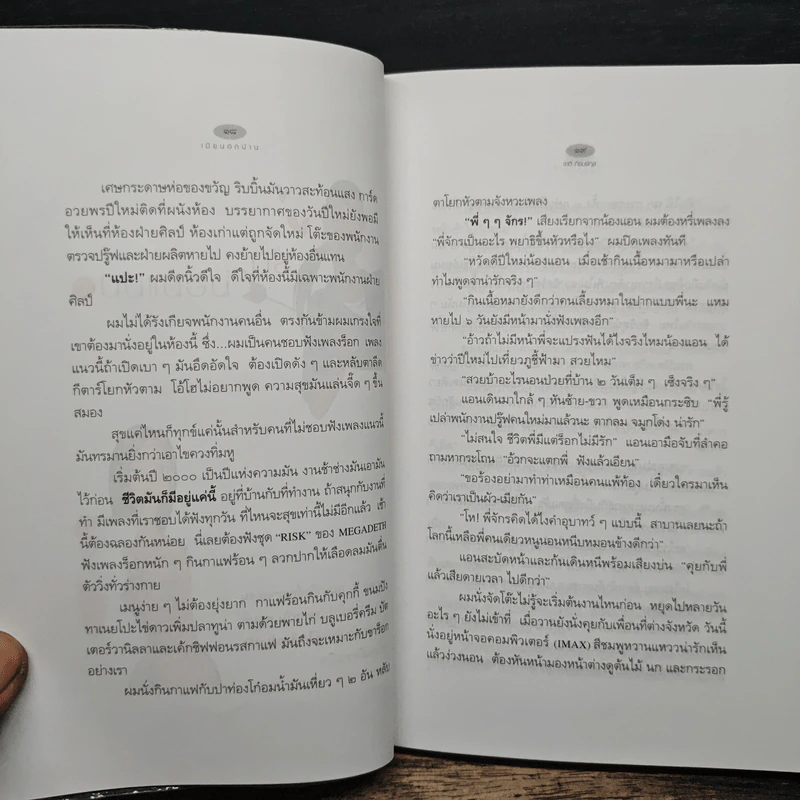 ๑๘
เมียนอกบ้าน
เศษกระดาษห่อของขวัญ ริบบิ้นมันวาวสะท้อนแสง การ์ด
อวยพรปีใหม่ติดที่ผนังห้อง บรรยากาศของวันปีใหม่ยังพอมี
ให้เห็นที่ห้องฝ่ายศิลป์ ห้องเก่าแต่ถูกจัดใหม่ โต๊ะของพนักงาน
ตรวจปรู๊ฟและฝ่ายผลิตหายไป คงย้ายไปอยู่ห้องอื่นแทน
"แปะ!" ผมดีดนิ้วดีใจ ดีใจที่ห้องนี้มีเฉพาะพนักงานฝ่าย
ศิลป์
ผมไม่ได้รังเกียจพนักงานคนอื่น ตรงกันข้ามผมเกรงใจที่
เขาต้องมานั่งอยู่ในห้องนี้ ซึ่ง...ผมเป็นคนชอบฟังเพลงร็อก เพลง
แนวนี้ถ้าเปิดเบา ๆ มันอึดอัดใจ ต้องเปิดดัง ๆ และหลับตาดีด
กีตาร์โยกหัวตาม โอ้โฮไม่อยากพูด ความสุขมันแล่นจี๊ด ๆ ขึ้น
สมอง
สุขแค่ไหนก็ทุกข์แค่นั้นสำหรับคนที่ไม่ชอบฟังเพลงแนวนี้
มันทรมานยิ่งกว่าเอาไขควงทิ่มหู
เริ่มต้นปี ๒๐๐๐ เป็นปีแห่งความมัน งานช้าช่างมันเอามัน
ไว้ก่อน ชีวิตมันก็มีอยู่แค่นี้ อยู่ที่บ้านกับที่ทำงาน ถ้าสนุกกับงานที่
ทำ มีเพลงที่เราชอบได้ฟังทุกวัน ที่ไหนจะสุขเท่านี้ไม่มีอีกแล้ว เช้า
นี้ต้องฉลองกันหน่อย นี่เลยต้องฟังชุด "RISK" ของ MEGADETH
ฟังเพลงร็อกหนัก ๆ กินกาแฟร้อน ๆ ลวกปากให้เลือดลมมันตื่น
ตัววิ่งทั่วร่างกาย
เมนูง่าย ๆ ไม่ต้องยุ่งยาก กาแฟร้อนกินกับคุกกี้ ขนมปัง
ทาเนยโปะไข่ดาวเพิ่มปลาทูน่า ตามด้วยพายไก่ บลูเบอรี่ครีม บัต
เตอร์วานิลลาและเค้กชิฟฟอนรสกาแฟ มันถึงจะเหมาะกับขาร็อก
อย่างเรา
ผมนั่งกินกาแฟกับปาท่องโก๋อมน้ำมันเหี่ยว ๆ ๒ อัน หลับ
๑๙
ตาโยกหัวตามจังหวะเพลง
"พี่ ๆ ๆ จักร!" เสียงเรียกจากน้องแอน ผมต้องหรี่เพลงลง
"พี่จักรเป็นอะไร พยาธิขึ้นหัวหรือไง" ผมปิดเพลงทันที
"หวัดดีปีใหม่น้องแอน เมื่อเช้ากินเนื้อหมามาหรือเปล่า
ทำไมพูดจาน่ารักจริง ๆ"
"กินเนื้อหมายังดีกว่าคนเลี้ยงหมาในปากแบบพี่นะ แหม
หายไป ๖ วันยังมีหน้ามานั่งฟังเพลงอีก"
"อ้าวถ้าไม่มีหน้าพี่จะแปรงฟันได้ไงจริงไหมน้องแอน ได้
ข่าวว่าปีใหม่ไปเที่ยวภูชี้ฟ้ามา สวยไหม"
"สวยบ้าอะไรนอนป่วยที่บ้าน ๒ วันเต็ม ๆ เซ็งจริง ๆ"
แอนเดินมาใกล้ ๆ หันซ้าย-ขวา พูดเหมือนกระซิบ "พี่รู้
เปล่าพนักงานปรู๊ฟคนใหม่มาแล้วนะ ตากลม จมูกโด่ง น่ารัก"
"ไม่สนใจ ชีวิตพี่มีแต่ร็อกไม่มีรัก" แอนเอามือจับที่ลำคอ
ถามหากระโถน "อ้วกจะแตกพี่ ฟังแล้วเอียน"
"ขอร้องอย่ามาทำท่าเหมือนคนแพ้ท้อง เดี๋ยวใครมาเห็น
คิดว่าเราเป็นผัว-เมียกัน"
"โห! พี่จักรคิดได้ไงคำอุบาทว์ ๆ แบบนี้ สาบานเลยนะถ้า
โลกนี้เหลือพี่คนเดียวหนูนอนหนีบหมอนข้างดีกว่า"
แอนสะบัดหน้าและก้นเดินหนีพร้อมเสียงบ่น "คุยกับพี่
แล้วเสียดายเวลา ไปดีกว่า"
ผมนั่งจัดโต๊ะไม่รู้จะเริ่มต้นงานไหนก่อน หยุดไปหลายวัน
อะไร ๆ ยังไม่เข้าที่ เมื่อวานยังนั่งคุยกับเพื่อนที่ต่างจังหวัด วันนี้
นั่งอยู่หน้าจอคอมพิวเตอร์ (IMAX) สีชมพูหวานแหววน่ารักเห็น
แล้วง่วงนอน ต้องหันหน้ามองหน้าต่างดูต้นไม้ นก และกระรอก